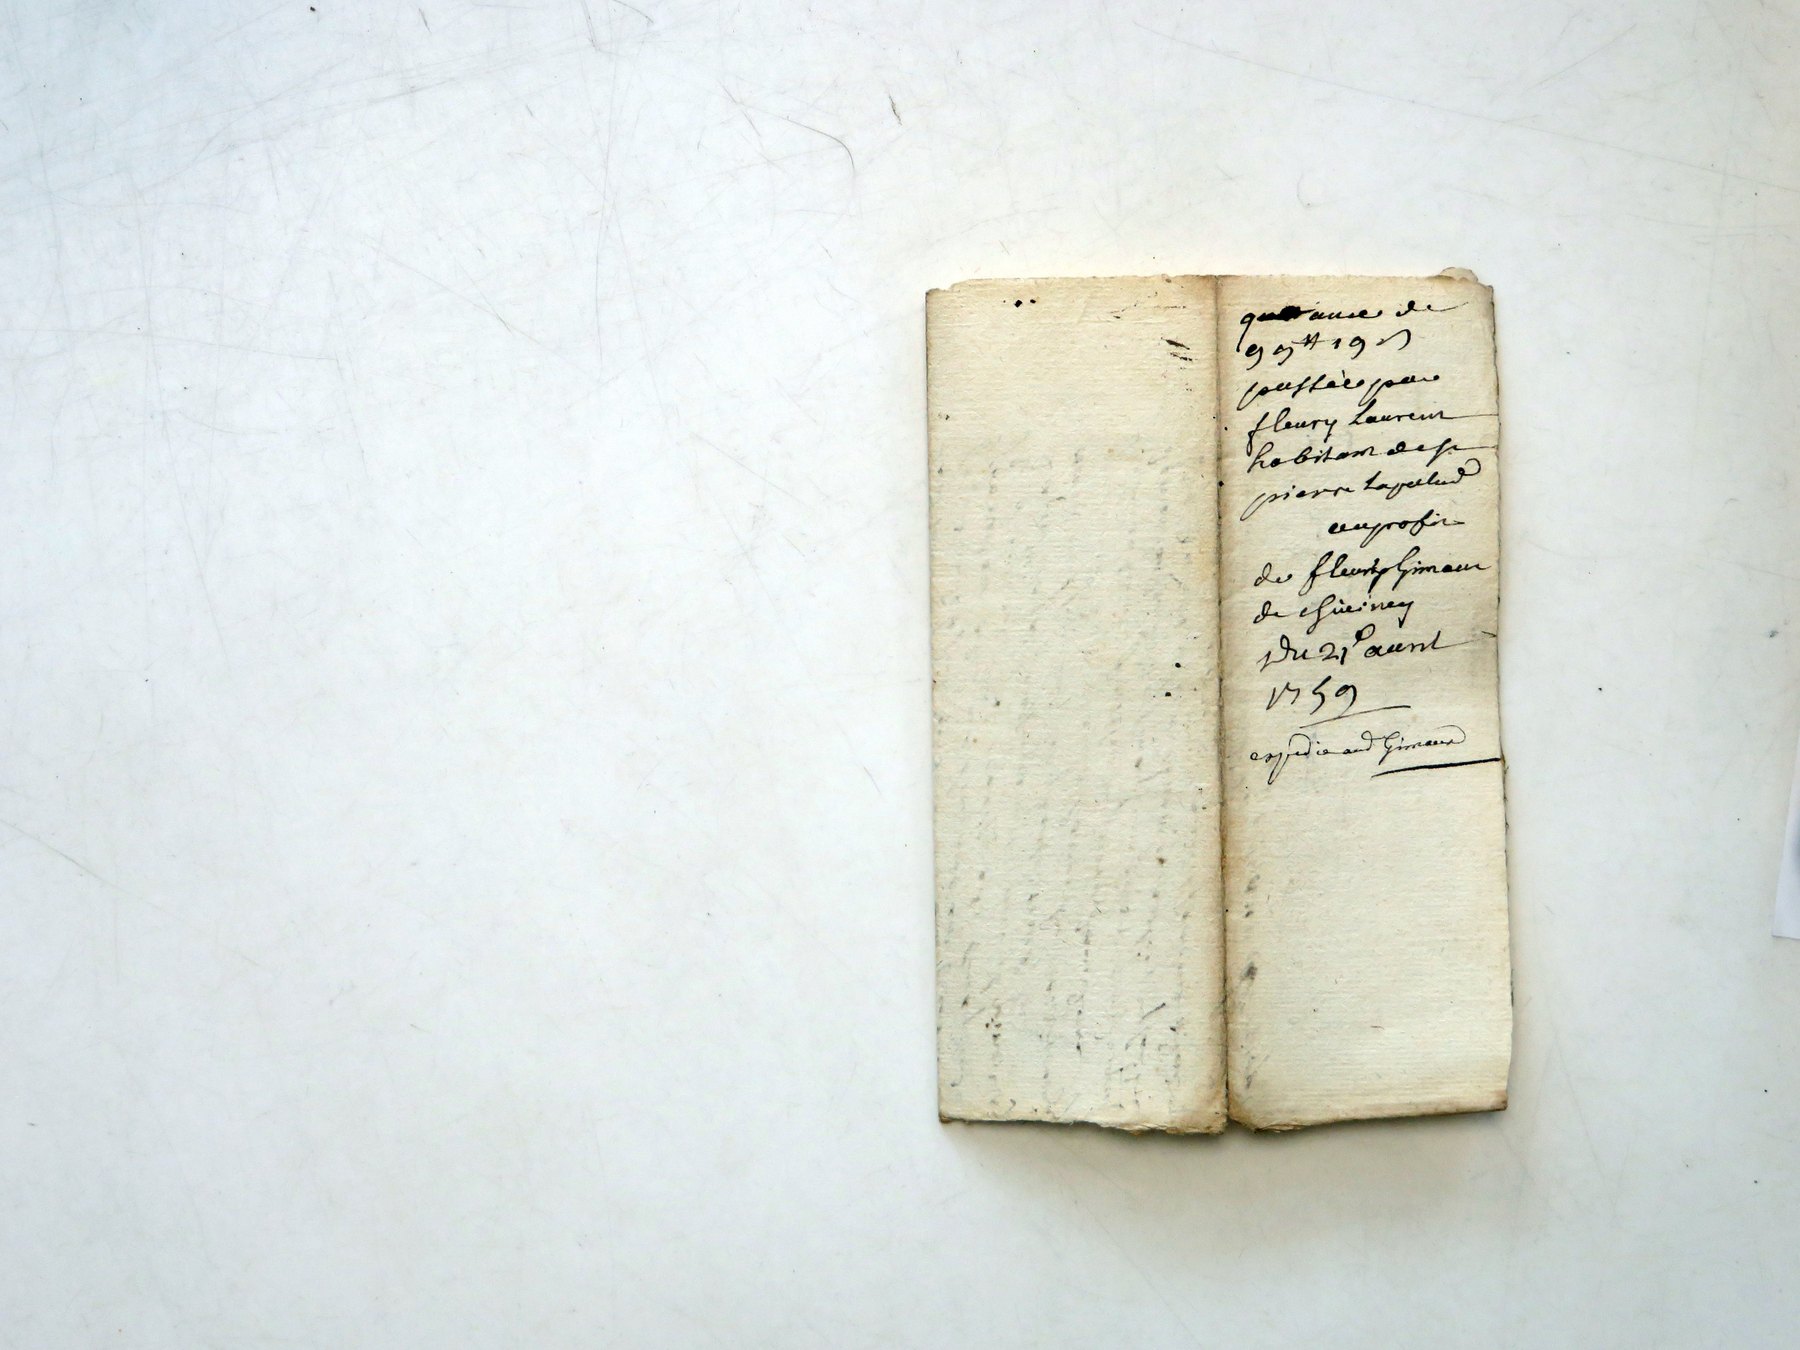 quittance de
99tt 19 s
passée par
fleury Laurent
habitant de st
pierre Lapalud
au profit
de fleury Gimaux
de Chüeiney
Du 21e avril
1759
expedie aud Gimaux